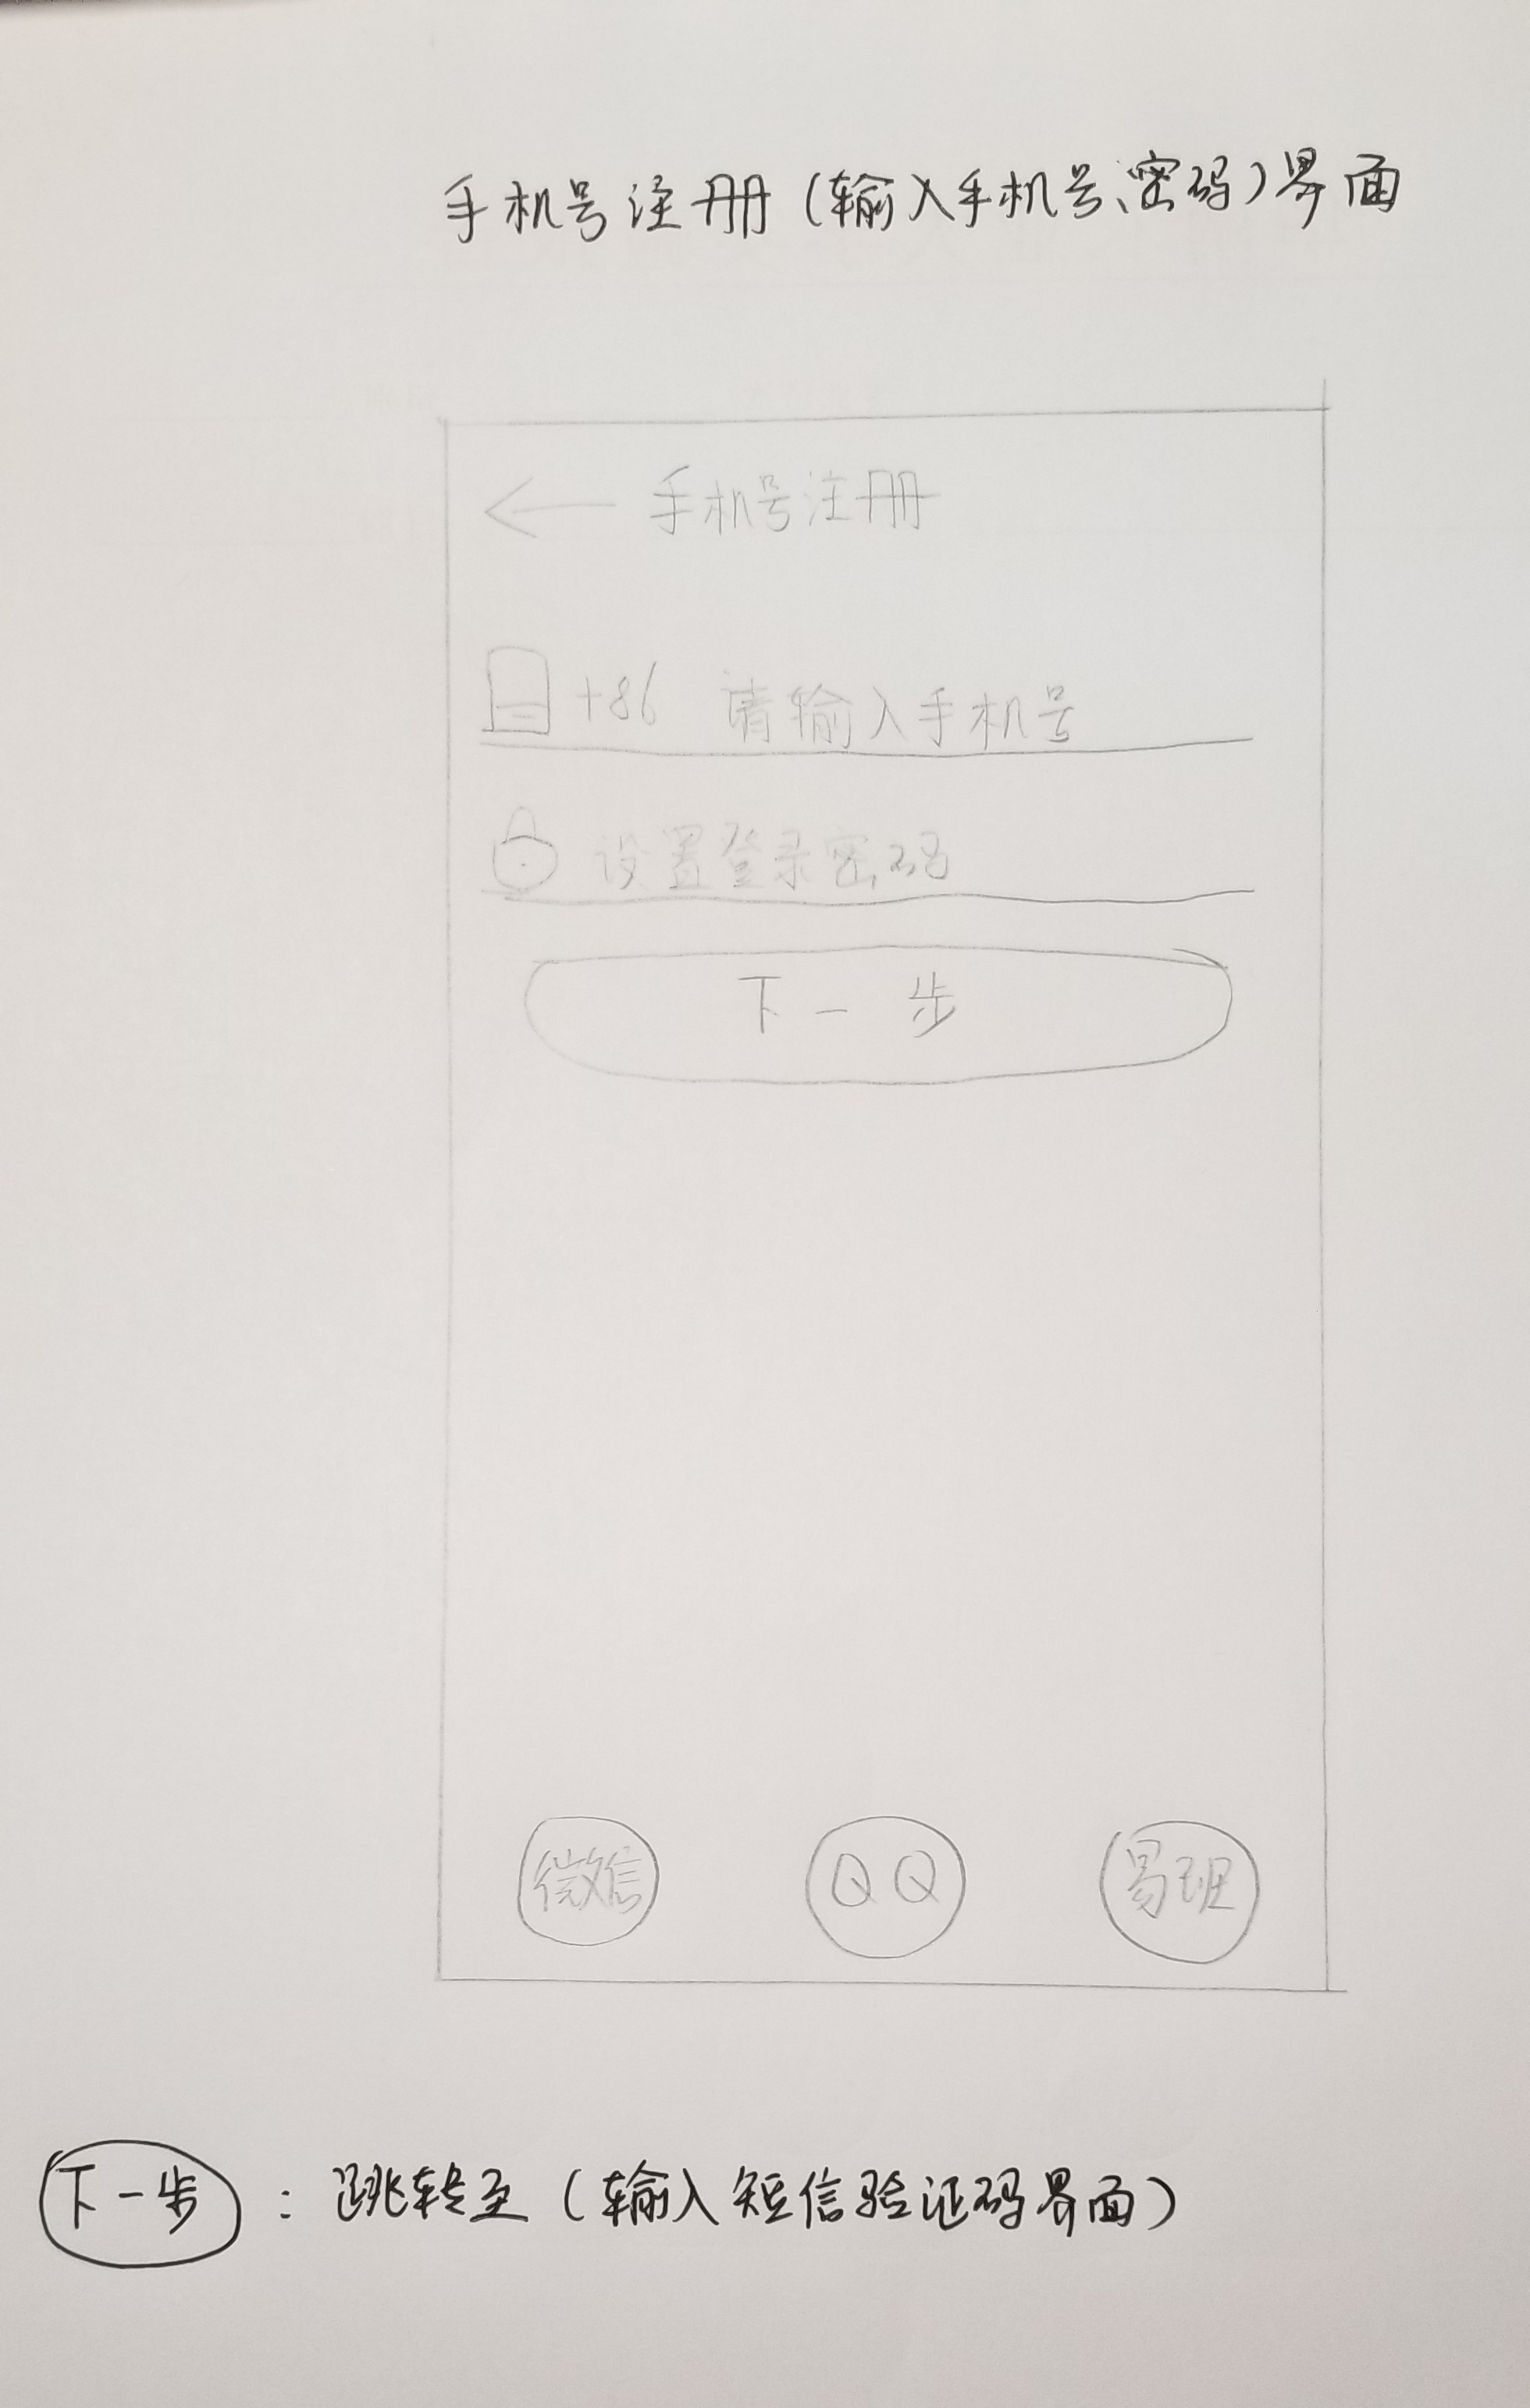 手机号注册(输入手机号、密码)界面
手机号注册
+86 请输入手机号
设置登录密码
下一步
微信 QQ 易班
下一步 : 跳转至(输入短信验证码界面)